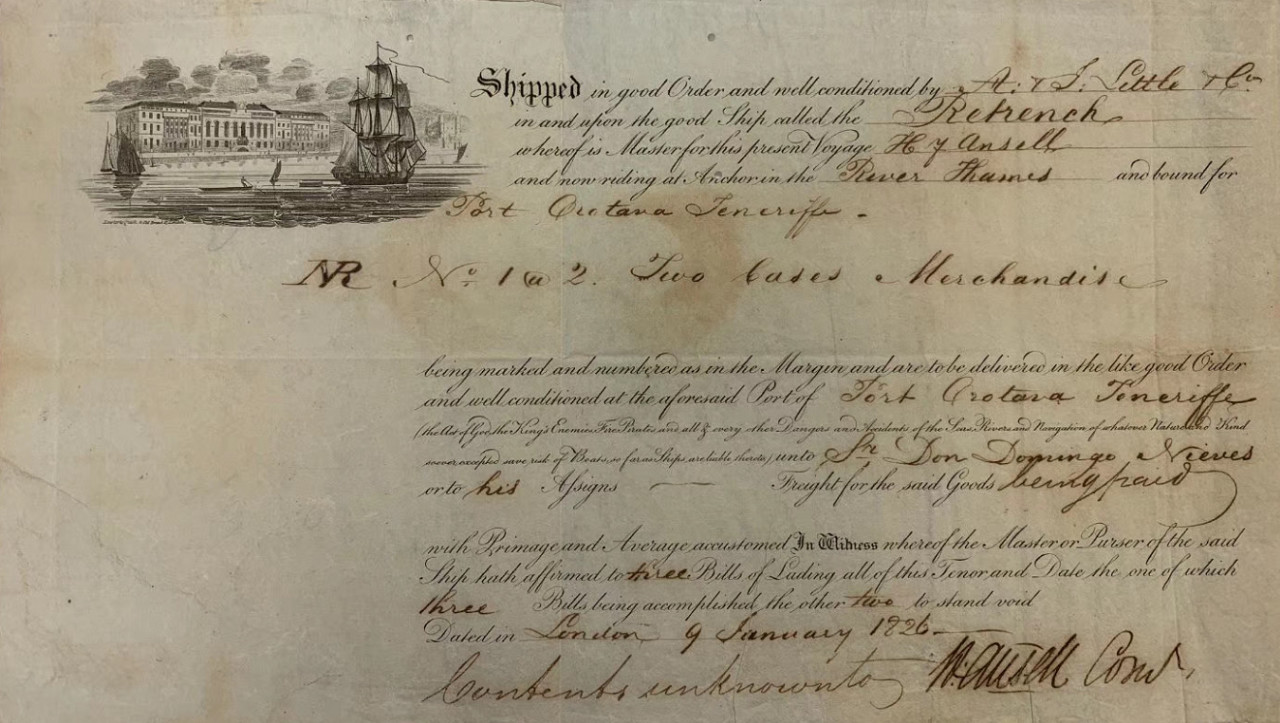 Shipped in good Order and well conditioned by A. & J. Little & Co
in and upon the good Ship called the Retrench
whereof is Master for this present Voyage Hy Ansell
and now riding at Anchor in the River Thames and bound for
Port Orotava Teneriffe -
NR No. 1 @ 2. Two Cases Merchandise
being marked and numbered as in the Margin and are to be delivered in the like good Order
and well conditioned at the aforesaid Port of Port Orotava Teneriffe
(the Act of God the King's Enemies Fire Pirates and all & every other Dangers and Accidents of the Seas Rivers and Navigation of whatever Nature and Kind
soever excepted save risk of Boats, so far as Ships are liable thereto) unto Sr. Don Domingo Nieves
or to his Assigns Freight for the said Goods being paid
with Primage and Average accustomed In Witness whereof the Master or Purser of the said
Ship hath affirmed to three Bills of Lading all of this Tenor and Date the one of which
three Bills being accomplished the other two to stand void
Dated in London 9 January 1826
Contents unknown to H. Ansell